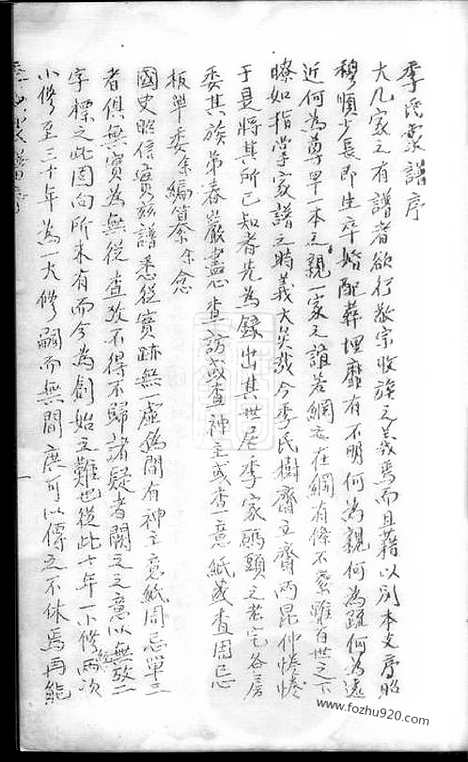 李氏家譜序
大凡家之有譜者欲行敬宗收族之義焉而且藉以别本支序昭
穆順少長即生卒婚配葬埋靡有不明何為親何為疏何為遠
近何為尊卑一本之親一家之誼若網之在綱有條不紊雖百世之下
瞭如指掌家譜之時義大矣哉今李氏樹齋立齋两昆仲惓惓
于是將其所已知者先為錄出其世居李家碼頭之老宅各房
委其族弟春嚴盡查訪或查神主或查意紙或查周忌
板單委余編纂余念
國史昭信實兹譜悉從實跡無一虚偽間有神主意紙周忌單三
者俱無實為無從查攷不得不歸諸疑者闕之之意以無攷二
字標之此固向所未有而今為創始之難也從此十年一小修兩次
小修至三十年為一大修嗣而無間庶可以傳之不休焉再能
李氏家譜序
一
www.fozhu920.com